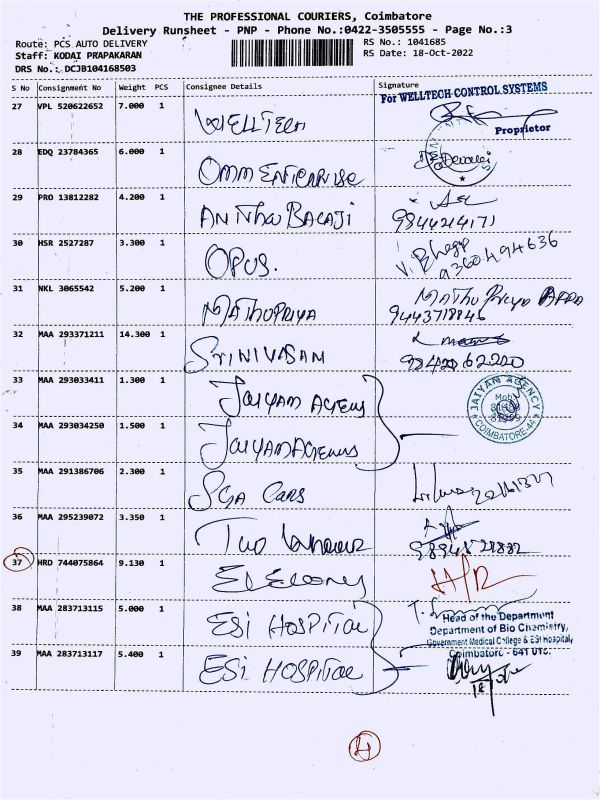 THE PROFESSIONAL COURIERS, Coimbatore
Delivery Runsheet - PNP - Phone No.:0422-3505555 - Page No.:3
Route: PCS AUTO DELIVERY RS No.: 1041685
Staff: KODAI PRAPAKARAN RS Date: 18-Oct-2022
DRS No.: DCJB104168503
S No Consignment No Weight PCS Consignee Details Signature
For WELLTECH CONTROL SYSTEMS
27 VPL 520622652 7.000 1 WELLTECH
Proprietor
28 EDQ 23784365 6.000 1 OMM ENTERPRISE
29 PRO 13812282 4.200 1 ANITHU BALAJI
9844214171
30 HSR 2527287 3.300 1 OPUS.
9360494636
31 NKL 3065542 5.200 1 MATHUPRIYA MATHU PRIYA APPA
9443718846
32 MAA 293371211 14.300 1 SRINIVASAM
33 MAA 293033411 1.300 1 JAIYAM AGENCY
JAIYAM AGENCY
Mob
COIMBATORE-44
34 MAA 293034250 1.500 1
35 MAA 291386706 2.300 1 SGA CARS
36 MAA 295239072 3.350 1
37 HRD 744075864 9.130 1
H/R
38 MAA 283713115 5.000 1 ESI HOSPITAL
Head of the Department
Department of Bio Chemistry,
Government Medical College & ESI Hospital,
Coimbatore - 641 015.
39 MAA 283713117 5.400 1 ESI HOSPITAL
4